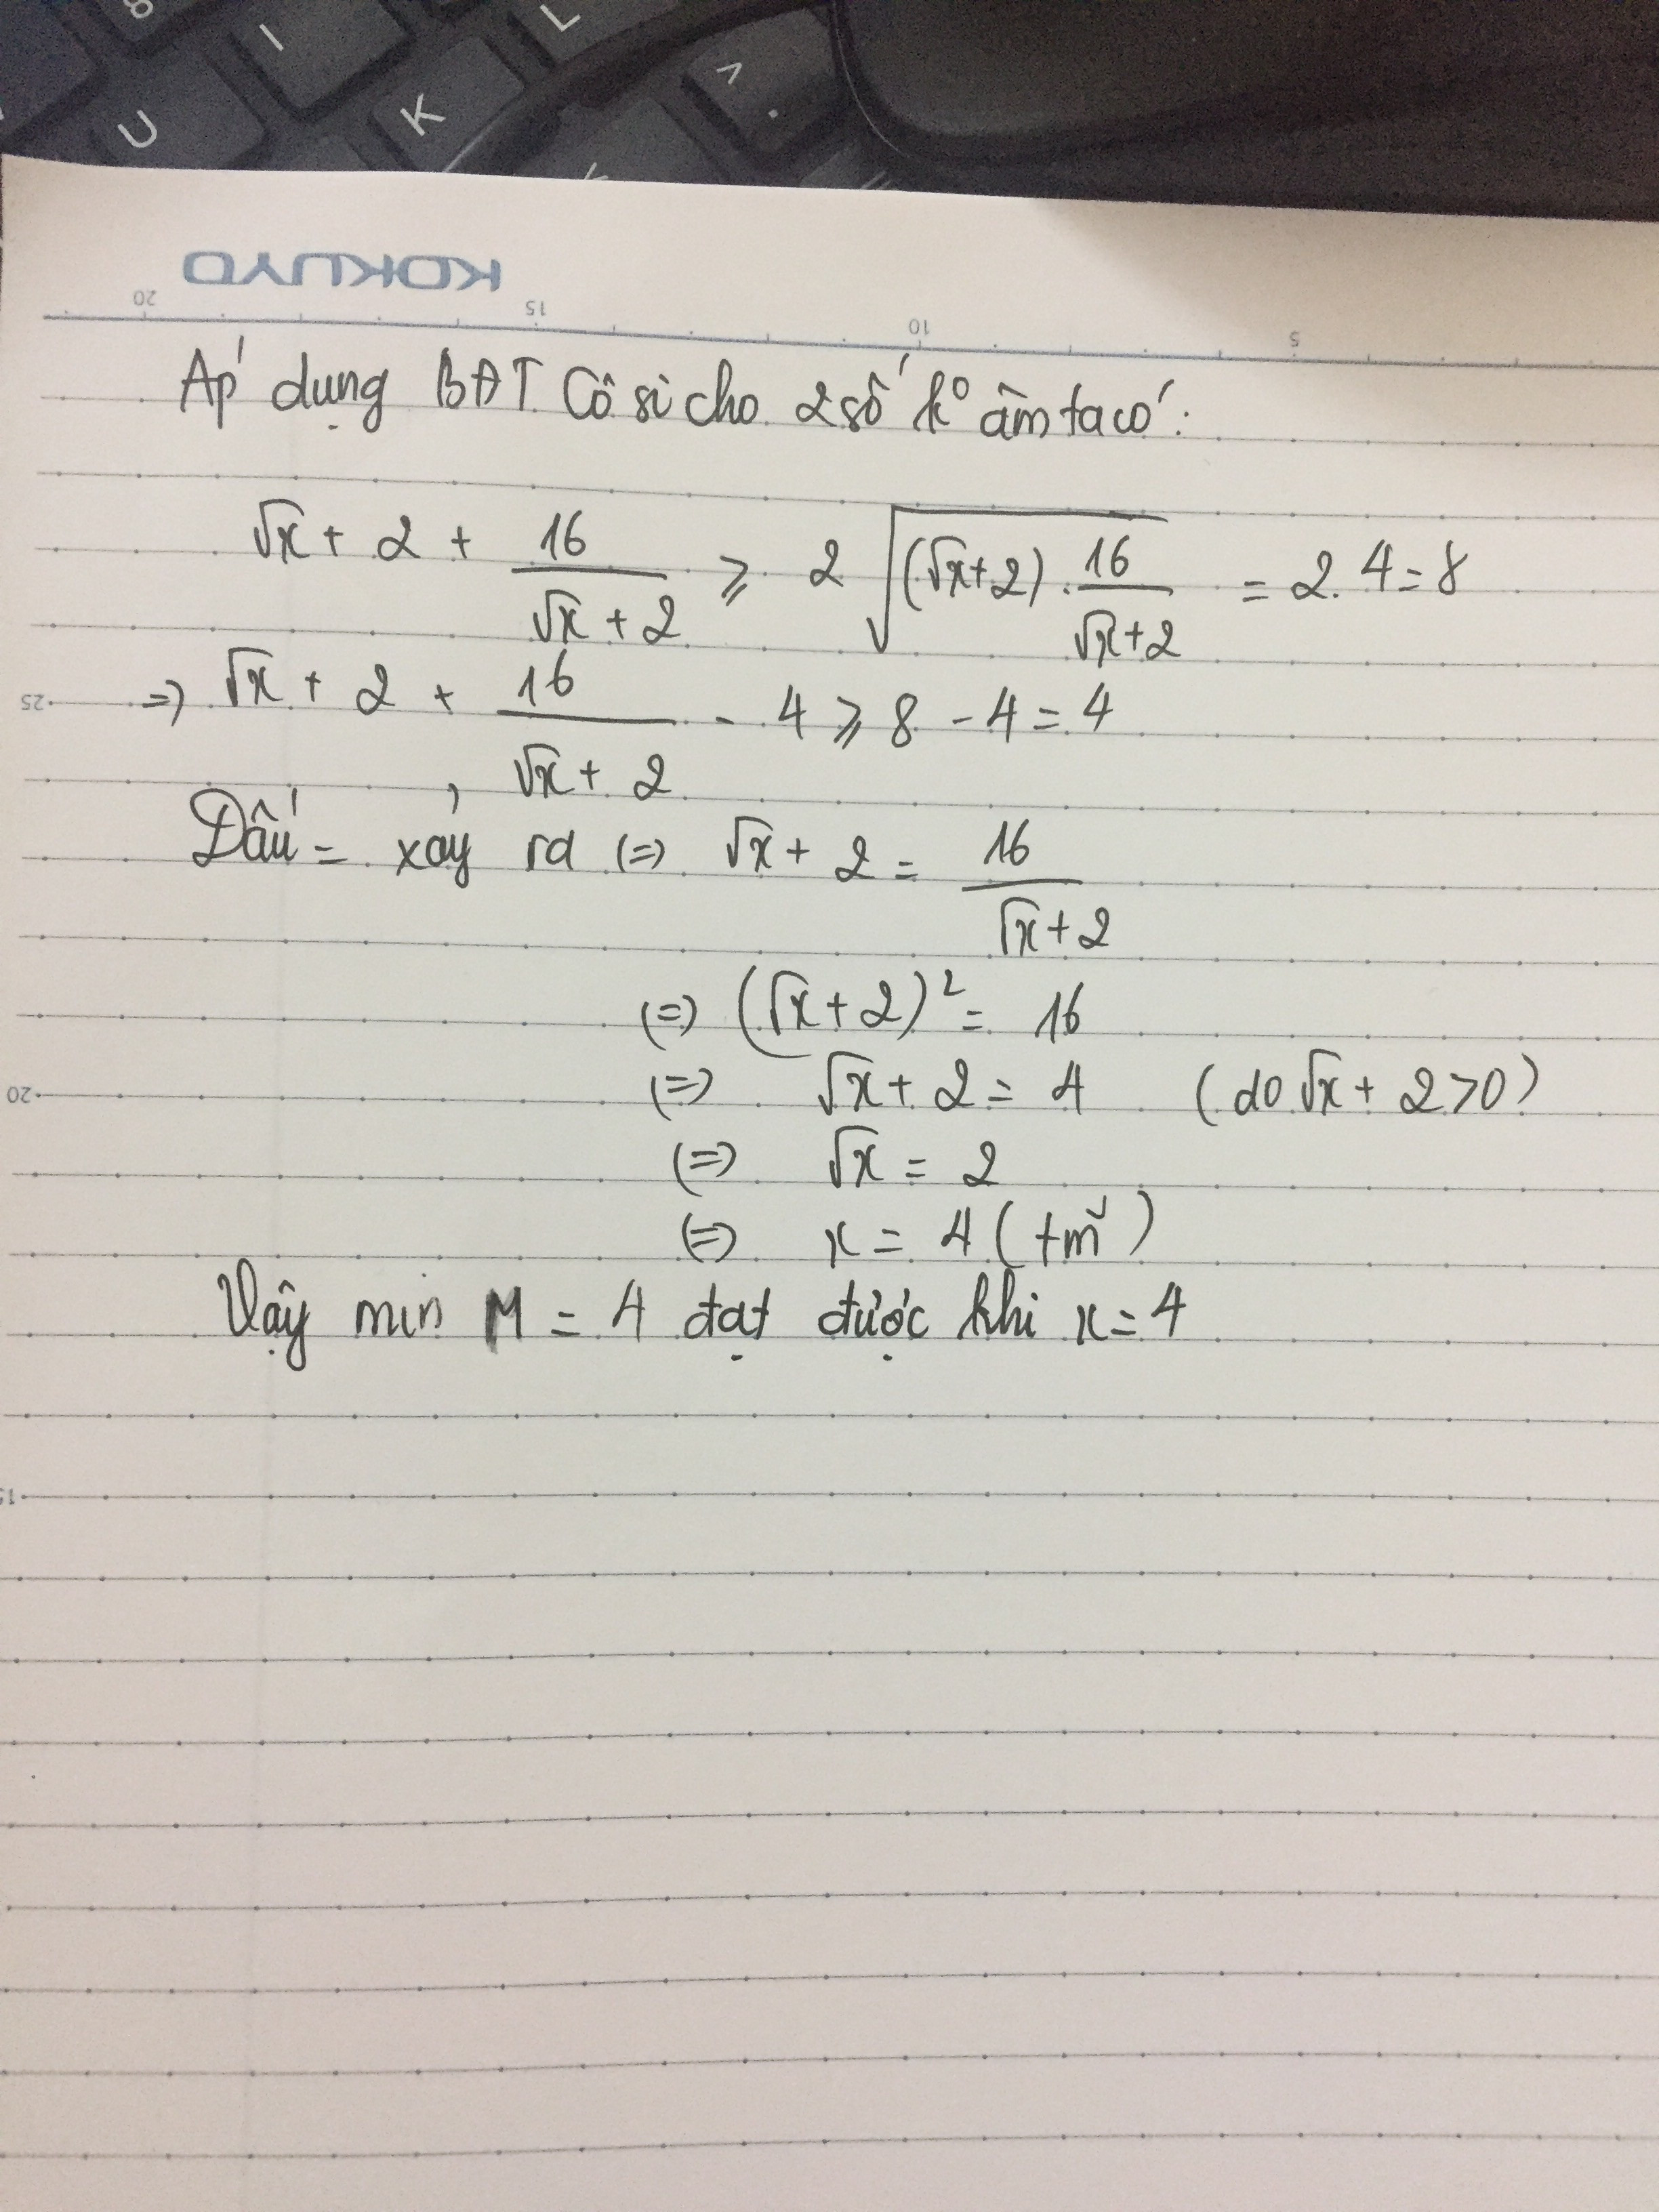 8
I
L
U
K
>
.
KOKUYO
20 15 10 5
Áp dụng BĐT Cô si cho 2 số k° âm ta có:
√x + 2 + 16/(√x + 2) ⩾ 2 √((√x+2) . 16/(√x+2)) = 2.4=8
25
=> √x + 2 + 16/(√x + 2) - 4 ⩾ 8 - 4 = 4
Dấu = xảy ra (=) √x + 2 = 16/(√x + 2)
(=) (√x + 2)² = 16
20
(=) √x + 2 = 4 (do √x + 2 >0)
(=) √x = 2
(=) x = 4 (tm)
Vậy min M = 4 đạt được khi x = 4